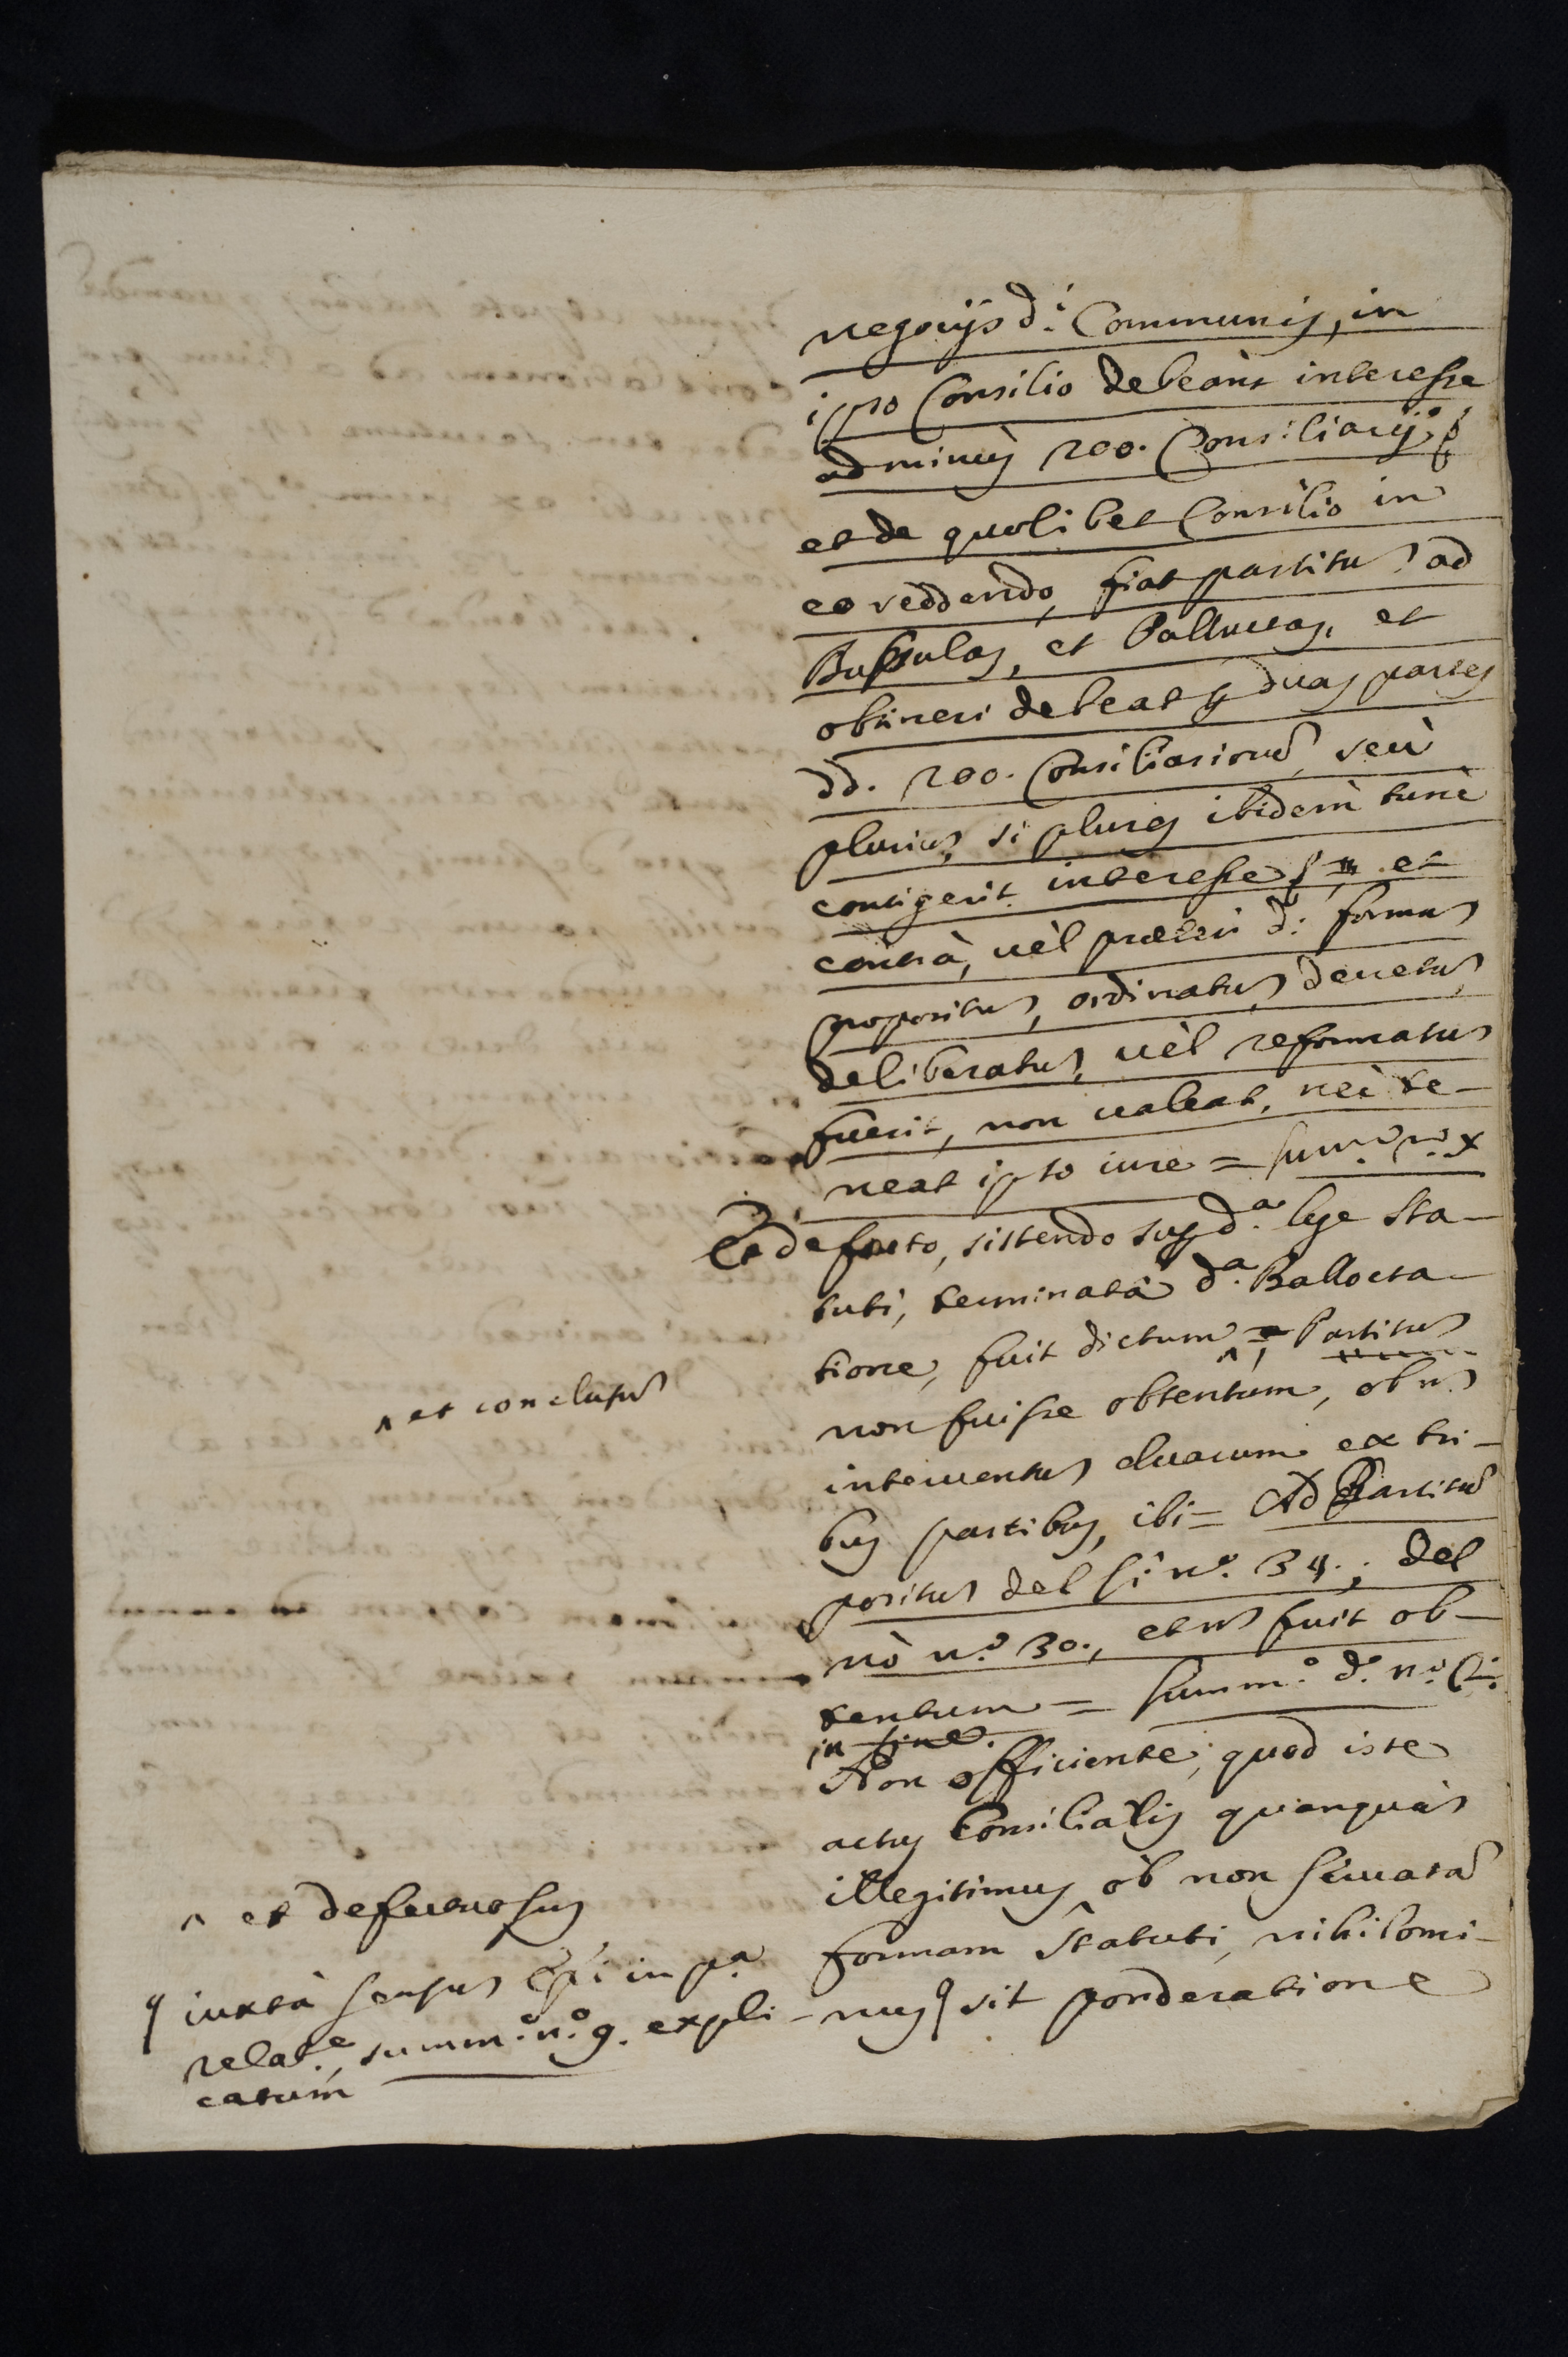 negocijs d.i Communis, in
ipso Consilio debeant interesse
ad minus 200. Consiliarij
et de quolibet Consilio in
eo reddendo, fiat partitum ad
Bussulas, et Balluctas, et
obtineri debeat per duas partes
dd. 200. Consiliariorum, seu
plurium, si plures ibidem tunc
contigerit interesse et
contra, vel praeter d.m formam
propositum, ordinatum, decretum,
deliberatum, vel reformatum
fuerit, non valeat, nec te-
neat ipso iure = Sum.o n.o X
Et de facto, sistendo sup d.a lege Sta-
tuti, terminata d.a Ballocta-
tione, fuit dictum ^ = Partitum
^ et conclusum
non fuisse obtentum, ob non
interventum duarum ex tri-
bus partibus, ibi = Ad Partitum
positum del Si n.o 34., del
nò n.o 30., et non fuit ob-
tentum = Summ.o d.o n.o
in fine.
Non officiente, quod iste
actus Consiliatis quanquam
illegitimus ob non servatam
^ et defectuosus
formam Statuti, nihilomi-
nus sit ponderatione
iuxta sensum in p.a
relat.e, summ.o n.o 9. expli-
catum